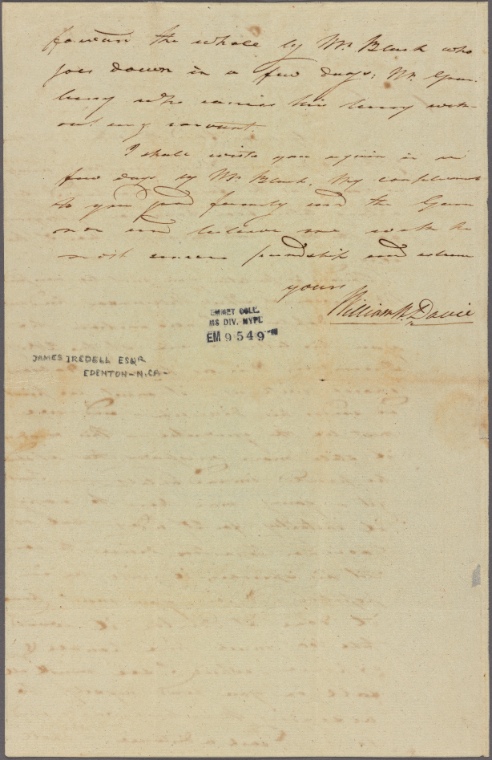 forward the whole by Mr Blank who
goes down in a few days; Mr
who carries this being with
out any servant
I shall write you again in a
few days by Mr Blank, My compliments
to your good family and the Gover
nor and believe me with the
most sincere friendship and esteem
yours
William R. Davie
EMMET COLL.
MS DIV. NYPL
EM 9549
JAMES IREDELL ESQR
EDENTON-N.CA-